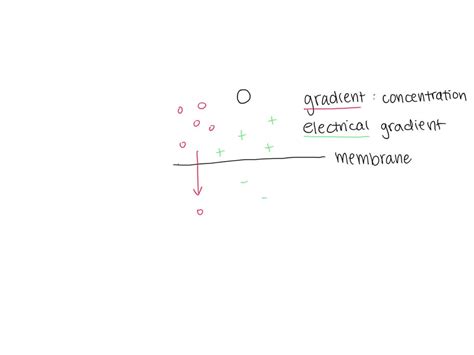 gradient : concentration
electrical gradient
membrane